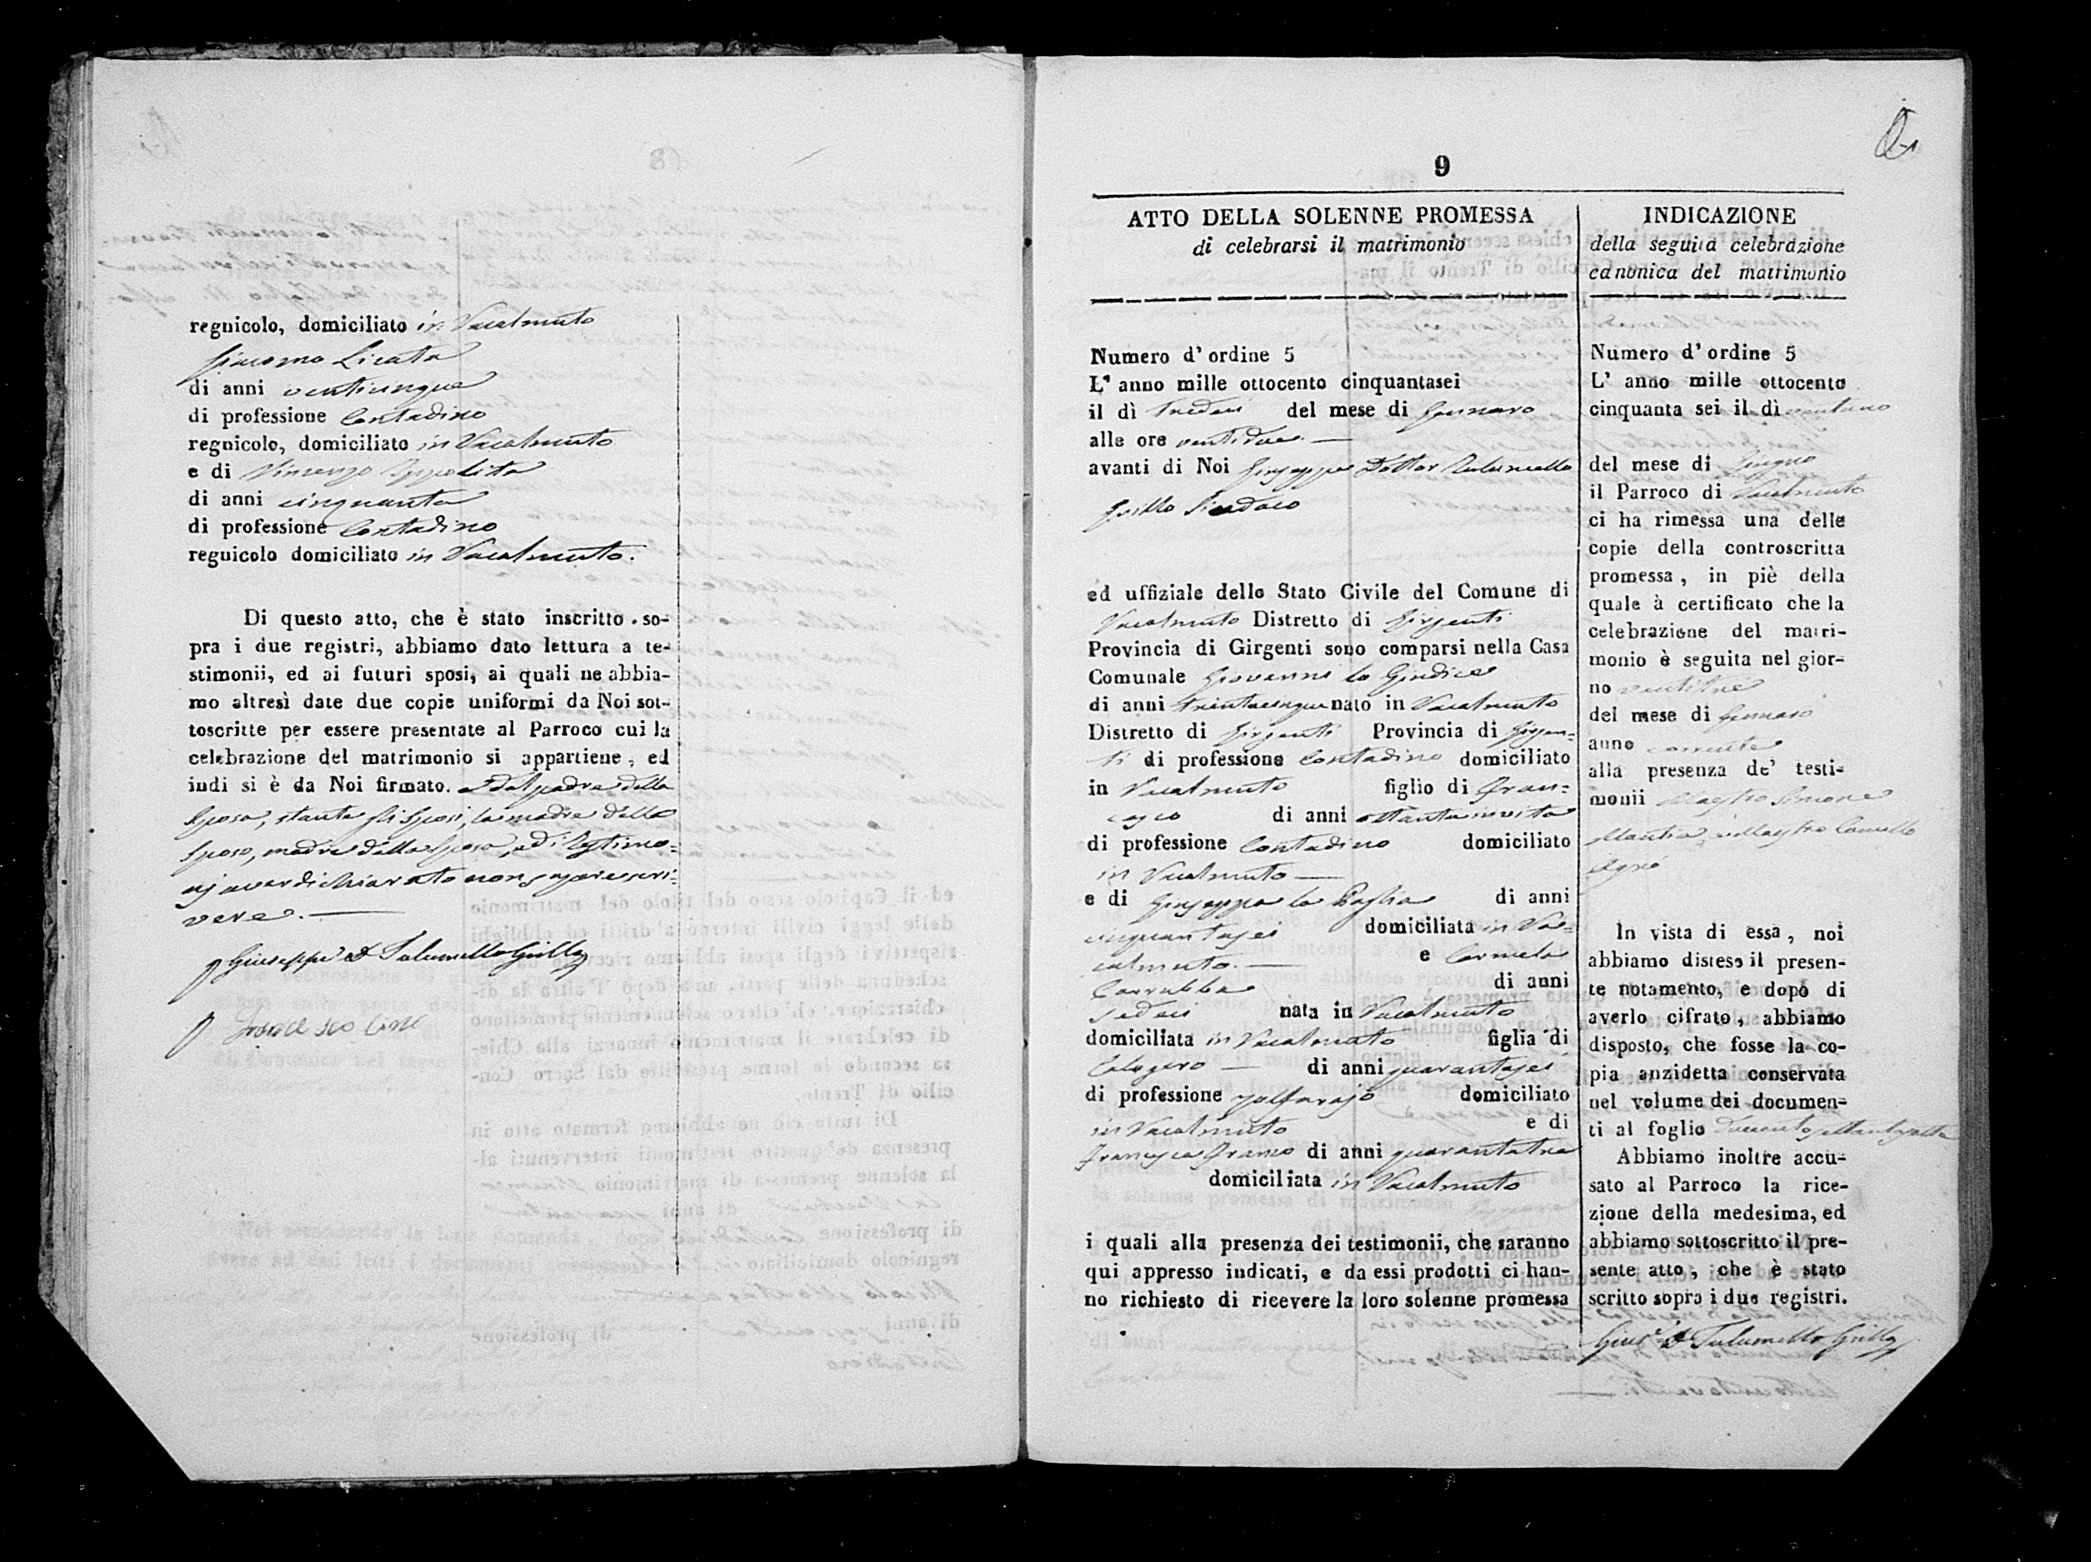 regnicolo, domiciliato in Racalmuto
Giacomo Licata
di anni venticinque
di professione Contadino
regnicolo, domiciliato in Racalmuto
e di Vincenzo Ippolito
di anni cinquanta
di professione Contadino
regnicolo domiciliato in Racalmuto.
Di questo atto, che è stato inscritto so-
pra i due registri, abbiamo dato lettura a te-
stimonii, ed ai futuri sposi, ai quali ne abbia-
mo altresì date due copie uniformi da Noi sot-
toscritte per essere presentate al Parroco cui la
celebrazione del matrimonio si appartiene, ed
indi si è da Noi firmato. e dal padre della
sposa, stante gli sposi, la madre dello
sposo, madre della sposa, ed i testimo=
nj aver dichiarato non sapere scri=
vere.
Giuseppe D. Tulumello Grillo
9
ATTO DELLA SOLENNE PROMESSA
di celebrarsi il matrimonio
Numero d' ordine 5
L' anno mille ottocento cinquantasei
il dì tredeci del mese di Gennaro
alle ore ventidue.
avanti di Noi Giuseppe Dottor Tulumello
Grillo Sindaco
ed uffiziale dello Stato Civile del Comune di
Racalmuto Distretto di Girgenti
Provincia di Girgenti sono comparsi nella Casa
Comunale Giovanni lo Giudice
di anni trentacinque nato in Racalmuto
Distretto di Girgenti Provincia di Girgen=
ti di professione Contadino domiciliato
in Racalmuto figlio di Fran=
cesco di anni ottanta
di professione Contadino domiciliato
in Racalmuto
e di Giuseppa la Paglia di anni
cinquantasei domiciliata in Ra=
calmuto. e Carmela
Carrubba di anni
sedeci nata in Racalmuto
domiciliata in Racalmuto figlia di
Calogero di anni quarantasei
di professione zolfarajo domiciliato
in Racalmuto e di
Francesca di anni quarantatre
domiciliata in Racalmuto
i quali alla presenza dei testimonii, che saranno
qui appresso indicati, e da essi prodotti ci han-
no richiesto di ricevere la loro solenne promessa
INDICAZIONE
della seguita celebrazione
canonica del matrimonio
Numero d' ordine 5
L' anno mille ottocento
cinquanta sei il dì ventuno
del mese di Giugno
il Parroco di Racalmuto
ci ha rimessa una delle
copie della controscritta
promessa, in piè della
quale à certificato che la
celebrazione del matri-
monio è seguita nel gior-
no ventitre
del mese di Gennaro
anno corrente
alla presenza de' testi-
monii Maestro Simone
Mantia, e Maestro Carmelo
Agrò
In vista di essa, noi
abbiamo disteso il presen-
te notamento, e dopo di
averlo cifrato, abbiamo
disposto, che fosse la co-
pia anzidetta conservata
nel volume dei documen-
ti al foglio
Abbiamo inoltre accu-
sato al Parroco la rice-
zione della medesima, ed
abbiamo sottoscritto il pre-
sente atto, che è stato
scritto sopra i due registri.
Gius.e D. Tulumello Grillo